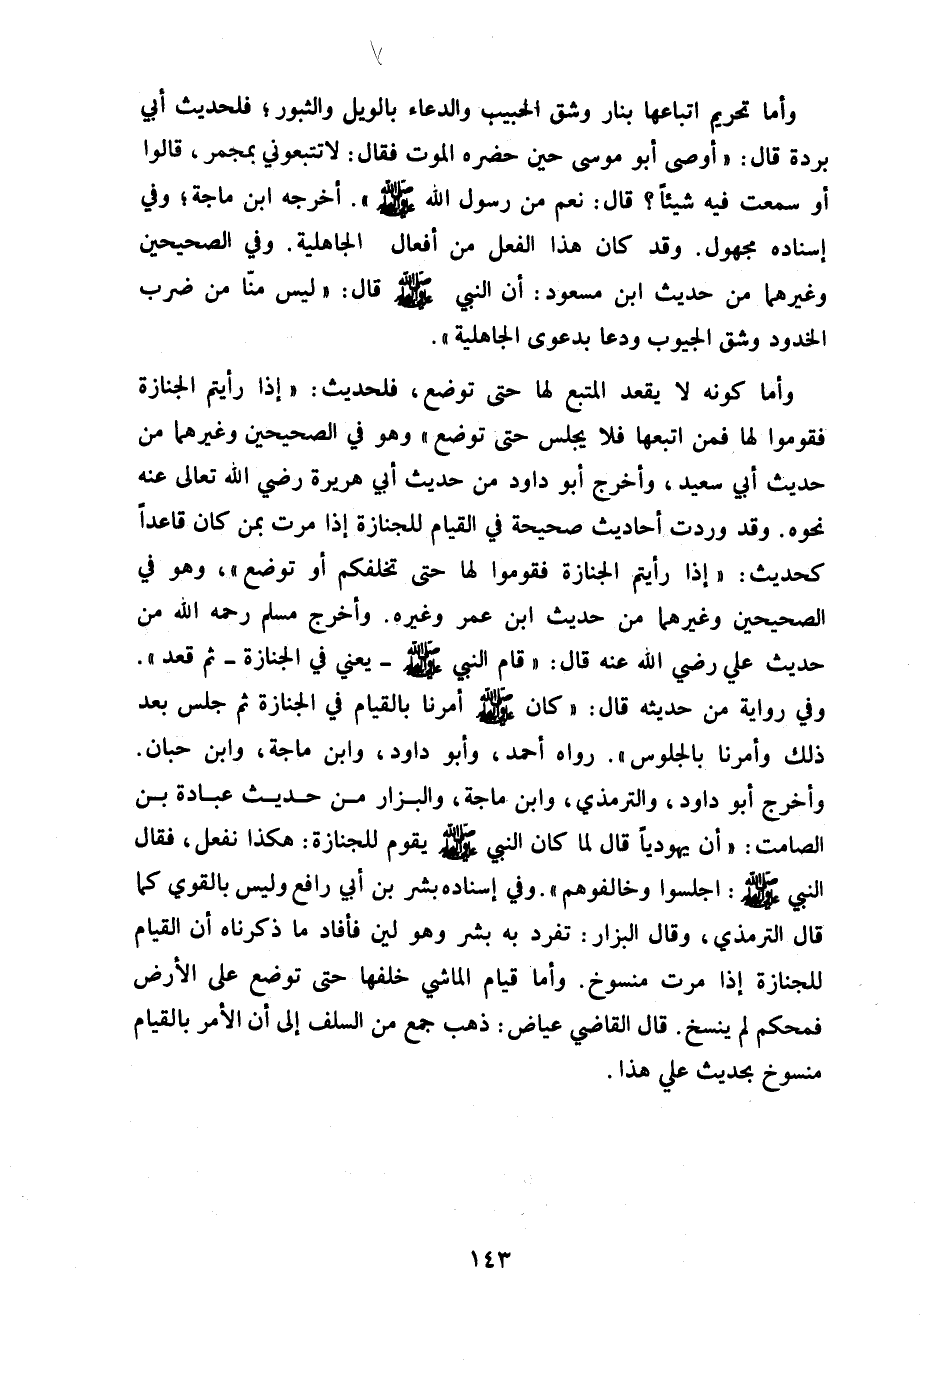 وأما تحريم اتباعها بنار وشق الجيب والدعاء بالويل والثبور؛ فلحديث أبي
بردة قال: « أوصى أبو موسى حين حضره الموت فقال: لاتتبعوني بمجمر، قالوا
أو سمعت فيه شيئاً؟ قال: نعم من رسول الله ﷺ ». أخرجه ابن ماجة؛ وفي
إسناده مجهول. وقد كان هذا الفعل من أفعال الجاهلية. وفي الصحيحين
وغيرهما من حديث ابن مسعود: أن النبي ﷺ قال: « ليس منّا من ضرب
الخدود وشق الجيوب ودعا بدعوى الجاهلية ».
وأما كونه لا يقعد المتبع لها حتى توضع، فلحديث: « إذا رأيتم الجنازة
فقوموا لها فمن اتبعها فلا يجلس حتى توضع » وهو في الصحيحين وغيرهما من
حديث أبي سعيد، وأخرج أبو داود من حديث أبي هريرة رضي الله تعالى عنه
نحوه. وقد وردت أحاديث صحيحة في القيام للجنازة إذا مرت بمن كان قاعداً
كحديث: « إذا رأيتم الجنازة فقوموا لها حتى تخلفكم أو توضع »، وهو في
الصحيحين وغيرهما من حديث ابن عمر وغيره. وأخرج مسلم رحمه الله من
حديث علي رضي الله عنه قال: « قام النبي ﷺ ـ يعني في الجنازة ـ ثم قعد ».
وفي رواية من حديثه قال: « كان ﷺ أمرنا بالقيام في الجنازة ثم جلس بعد
ذلك وأمرنا بالجلوس ». رواه أحمد، وأبو داود، وابن ماجة، وابن حبان.
وأخرج أبو داود، والترمذي، وابن ماجة، والبزار من حديث عبادة بن
الصامت: « أن يهودياً قال لما كان النبي ﷺ يقوم للجنازة: هكذا نفعل، فقال
النبي ﷺ : اجلسوا وخالفوهم ». وفي إسناده بشر بن أبي رافع وليس بالقوي كما
قال الترمذي، وقال البزار: تفرد به بشر وهو لين فأفاد ما ذكرناه أن القيام
للجنازة إذا مرت منسوخ. وأما قيام الماشي خلفها حتى توضع على الأرض
فمحكم لم ينسخ. قال القاضي عياض: ذهب جمع من السلف إلى أن الأمر بالقيام
منسوخ بحديث علي هذا.
١٤٣